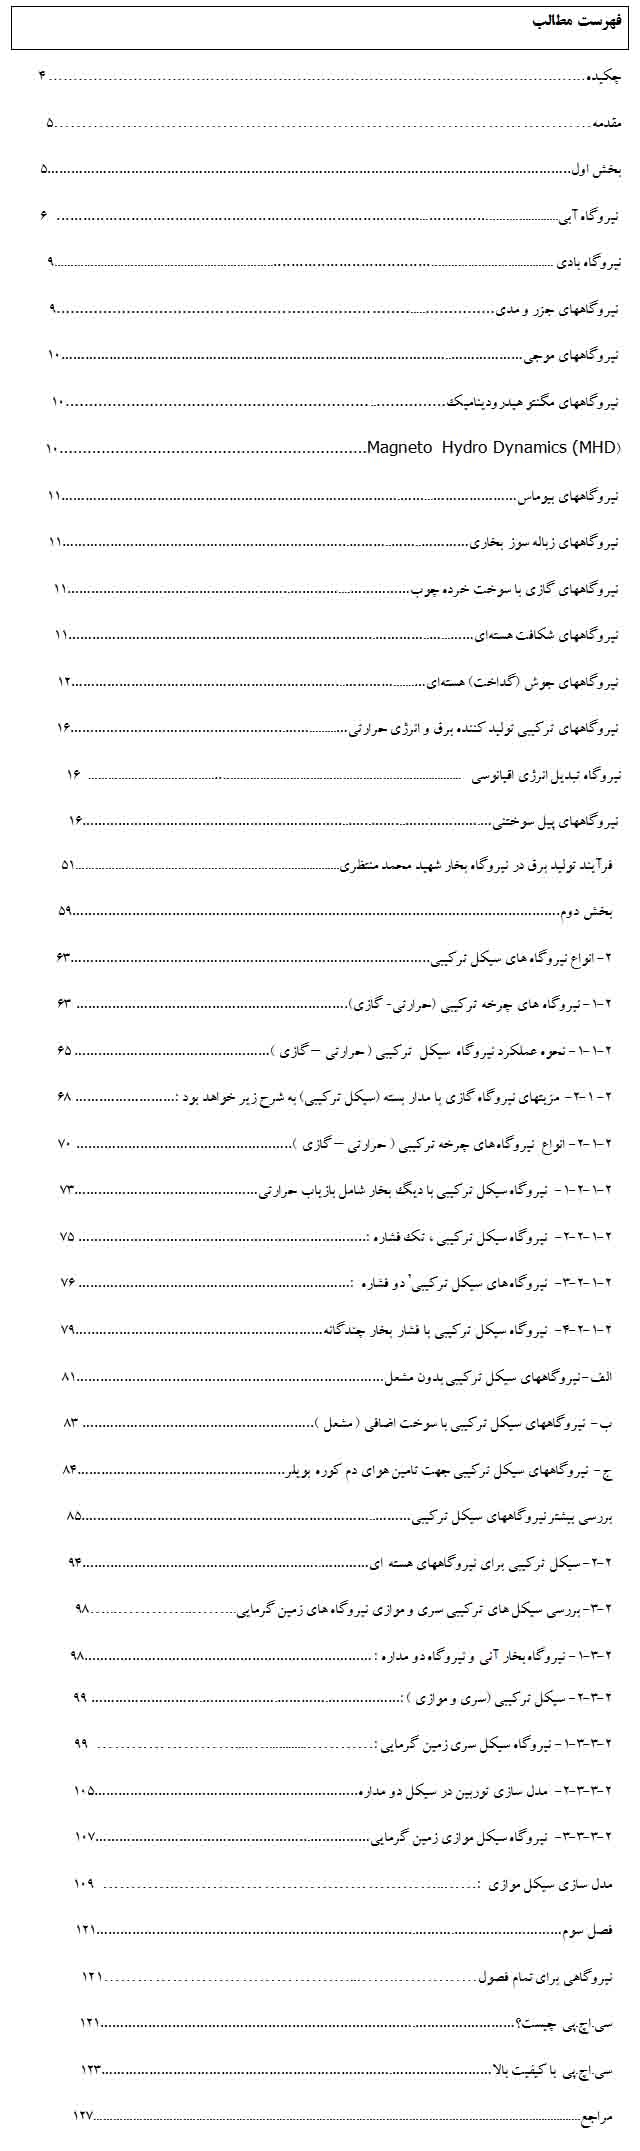 فهرست مطالب
چکیده ........ ۴
مقدمه ........ ۵
بخش اول ........ ۵
نیروگاه آبی ........ ۶
نیروگاه بادی ........ ۹
نیروگاههای جزر و مدی ........ ۹
نیروگاههای موجی ........ ۱۰
نیروگاههای مگنتو هیدرودینامیک ........ ۱۰
Magneto Hydro Dynamics (MHD) ........ ۱۰
نیروگاههای بیوماس ........ ۱۱
نیروگاههای زباله سوز بخاری ........ ۱۱
نیروگاههای گازی با سوخت خرده چوب ........ ۱۱
نیروگاههای شکافت هسته‌ای ........ ۱۱
نیروگاههای جوش (گداخت) هسته‌ای ........ ۱۲
نیروگاههای ترکیبی تولید کننده برق و انرژی حرارتی ........ ۱۶
نیروگاه تبدیل انرژی اقیانوسی ........ ۱۶
نیروگاههای پیل سوختنی ........ ۱۶
فرآیند تولید برق در نیروگاه بخار شهید محمد منتظری ........ ۵۱
بخش دوم ........ ۵۹
۲- انواع نیروگاه های سیکل ترکیبی ........ ۶۳
۲-۱- نیروگاه های چرخه ترکیبی (حرارتی- گازی) ........ ۶۳
۲-۱-۱- نحوه عملکرد نیروگاه سیکل ترکیبی ( حرارتی – گازی ) ........ ۶۵
۲-۱-۲- مزیتهای نیروگاه گازی با مدار بسته (سیکل ترکیبی) به شرح زیر خواهد بود : ........ ۶۸
۲-۱-۲- انواع نیروگاه های چرخه ترکیبی ( حرارتی – گازی ) ........ ۷۰
۲-۱-۲-۱- نیروگاه سیکل ترکیبی با دیگ بخار شامل بازیاب حرارتی ........ ۷۳
۲-۱-۲-۲- نیروگاه سیکل ترکیبی ، تک فشاره : ........ ۷۵
۲-۱-۲-۳- نیروگاه های سیکل ترکیبی' دو فشاره : ........ ۷۶
۲-۱-۲-۴- نیروگاه سیکل ترکیبی با فشار بخار چندگانه ........ ۷۹
الف-نیروگاههای سیکل ترکیبی بدون مشعل ........ ۸۱
ب- نیروگاههای سیکل ترکیبی با سوخت اضافی ( مشعل ) ........ ۸۳
ج- نیروگاههای سیکل ترکیبی جهت تامین هوای دم کوره بویلر ........ ۸۴
بررسی بیشتر نیروگاههای سیکل ترکیبی ........ ۸۵
۲-۲-سیکل ترکیبی برای نیروگاههای هسته ای ........ ۹۴
۲-۳-بررسی سیکل های ترکیبی سری و موازی نیروگاه های زمین گرمایی ........ ۹۸
۲-۳-۱- نیروگاه بخار آنی و نیروگاه دو مداره : ........ ۹۸
۲-۳-۲- سیکل ترکیبی (سری و موازی ) : ........ ۹۹
۲-۳-۳-۱- نیروگاه سیکل سری زمین گرمایی : ........ ۹۹
۲-۳-۳-۲- مدل سازی توربین در سیکل دو مداره ........ ۱۰۵
۲-۳-۳-۳- نیروگاه سیکل موازی زمین گرمایی ........ ۱۰۷
مدل سازی سیکل موازی : ........ ۱۰۹
فصل سوم ........ ۱۲۱
نیروگاهی برای تمام فصول ........ ۱۲۱
سی.اچ.پی چیست؟ ........ ۱۲۱
سی.اچ.پی با کیفیت بالا ........ ۱۲۳
مراجع ........ ۱۲۷